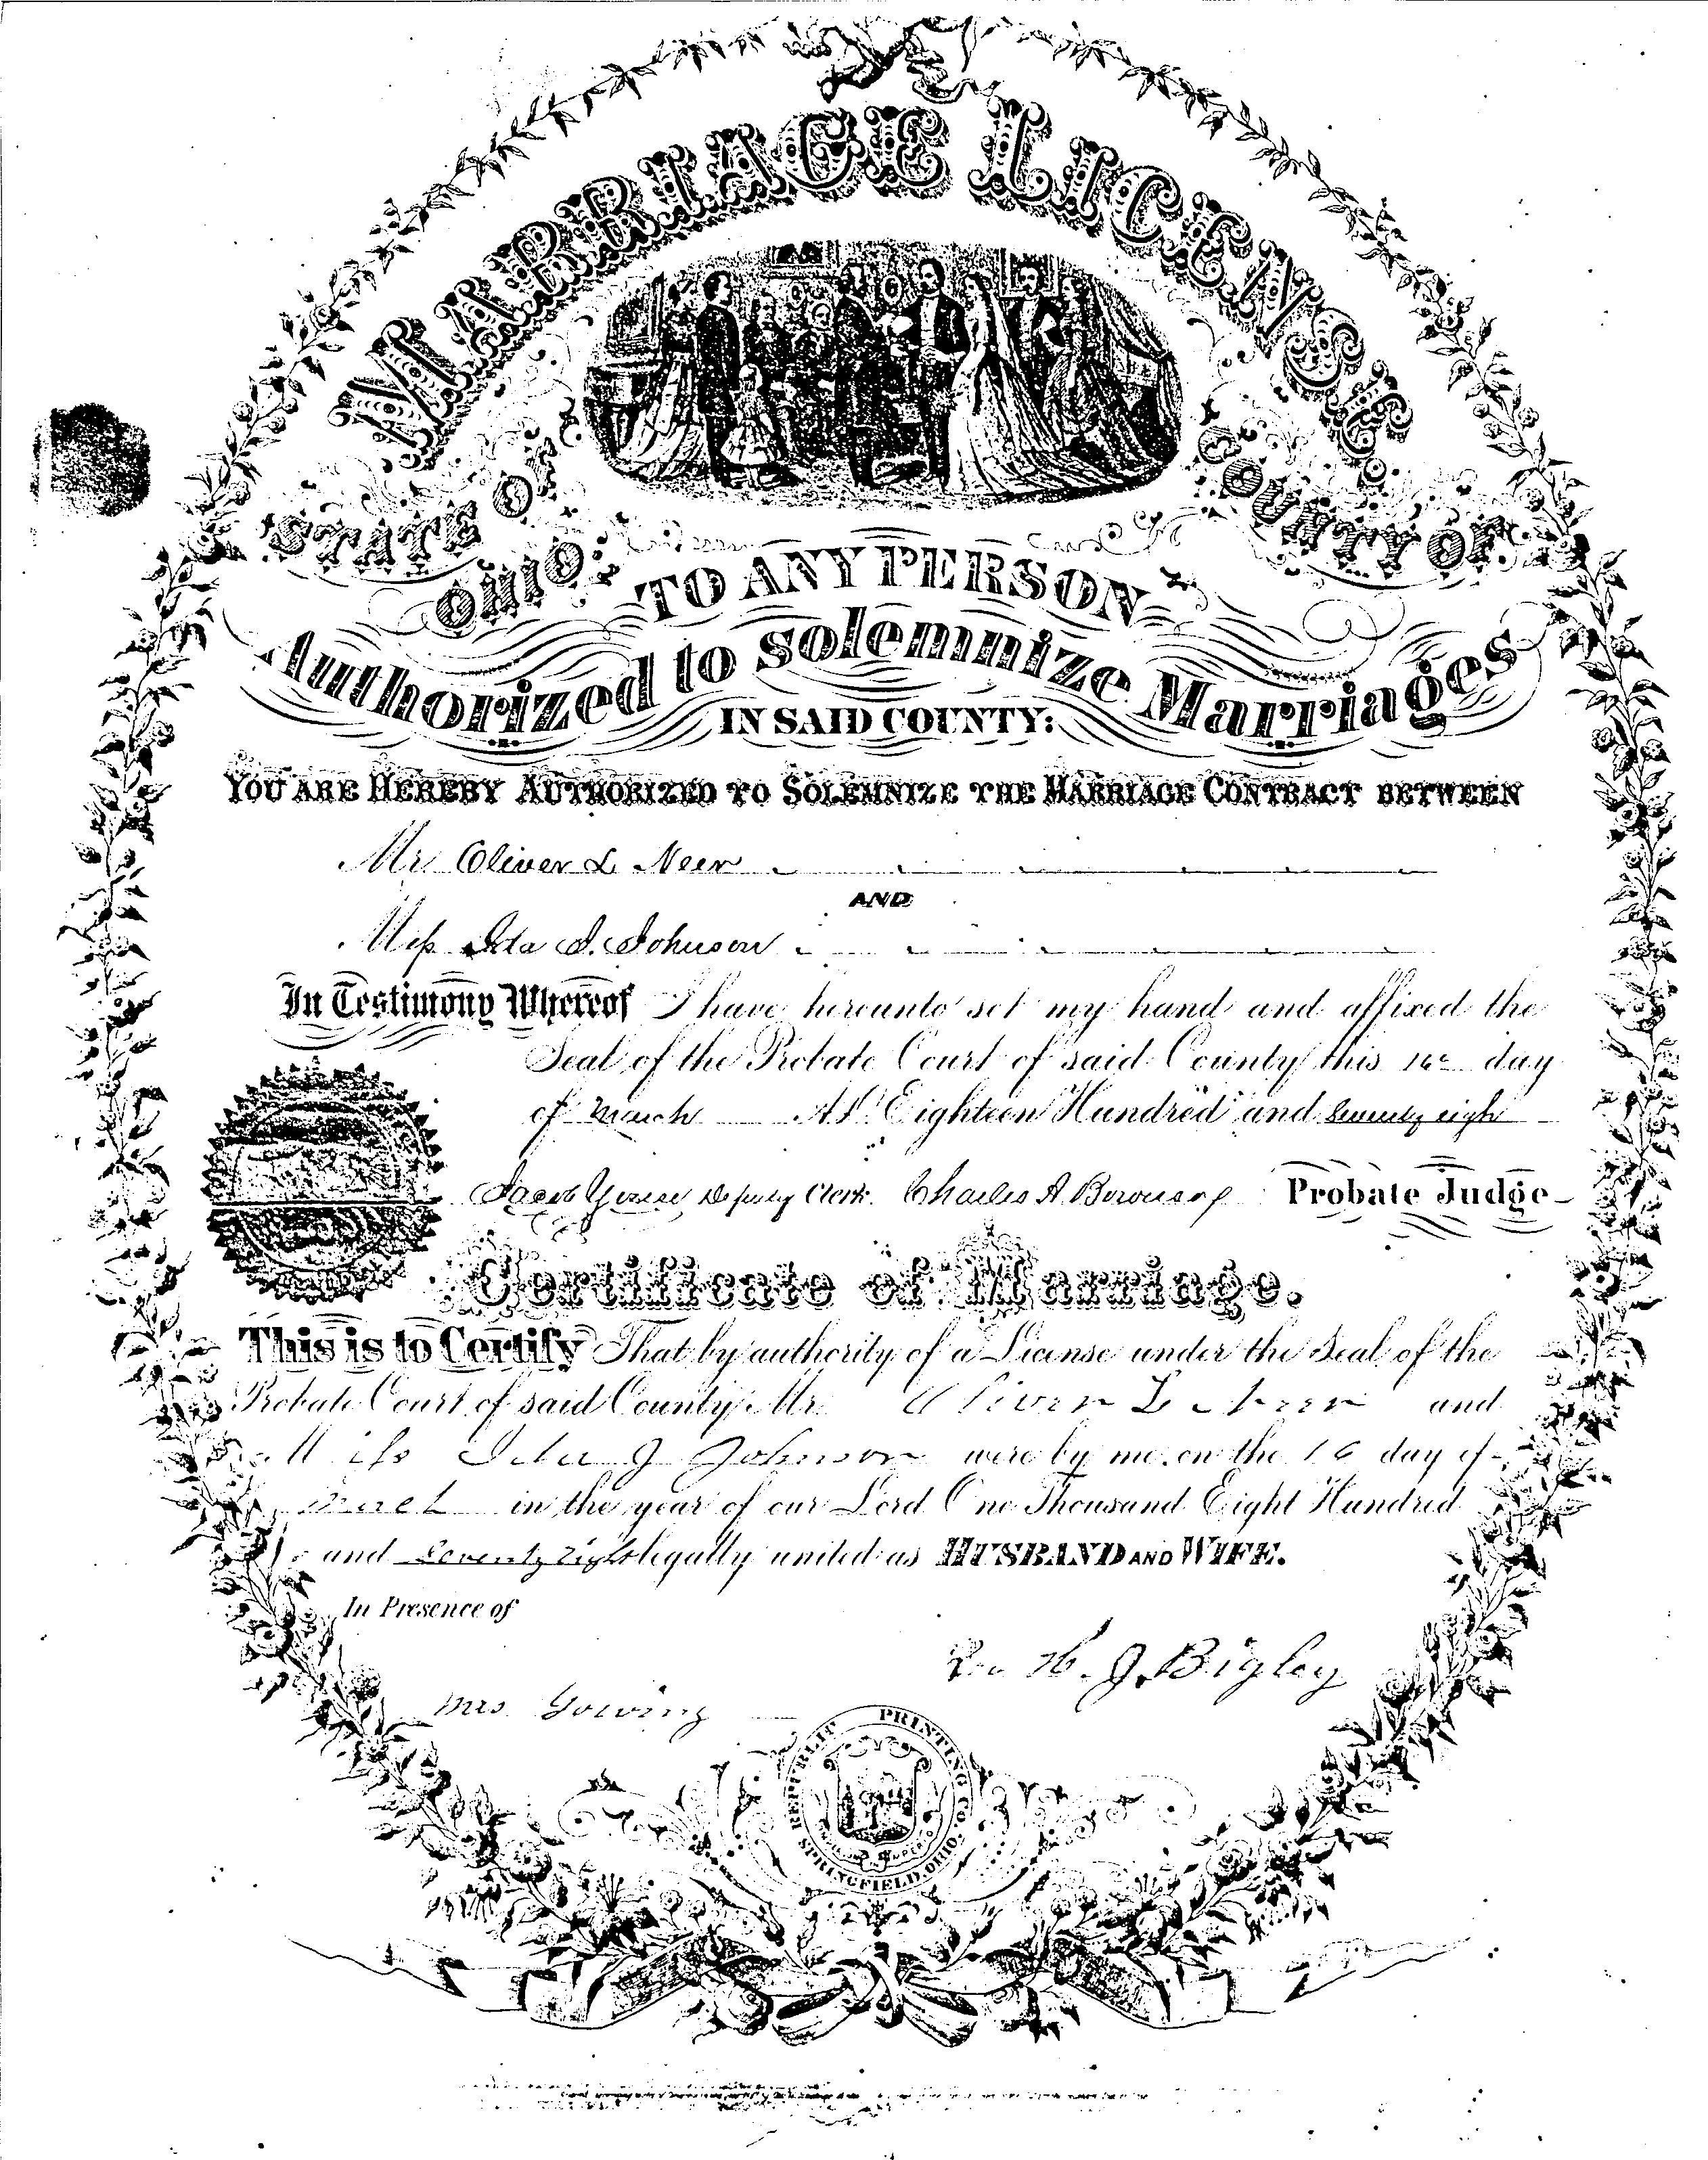 MARRIAGE LICENSE
STATE OF OHIO:
COUNTY OF
TO ANY PERSON
Authorized to solemnize Marriages
IN SAID COUNTY:
YOU ARE HEREBY AUTHORIZED TO SOLEMNIZE THE MARRIAGE CONTRACT BETWEEN
Mr. Oliver L Neer
AND
Miss Ida J. Johnson
In Testimony Whereof I have hereunto set my hand and affixed the
Seal of the Probate Court of said County this 16 day
of March A.D. Eighteen Hundred and Seventy eight
Jacob Deputy Clerk. Charles A. Probate Judge
Certificate of Marriage.
This is to Certify That by authority of a License under the Seal of the
Probate Court of said County Mr. Oliver L Neer and
Miss Ida J Johnson were by me on the 16 day of
March in the year of our Lord One Thousand Eight Hundred
and Seventy Eight legally united as HUSBAND AND WIFE.
In Presence of
Rev H. J. Bigley
Mrs Gowing
REPUBLIC PRINTING CO. SPRINGFIELD, OHIO.